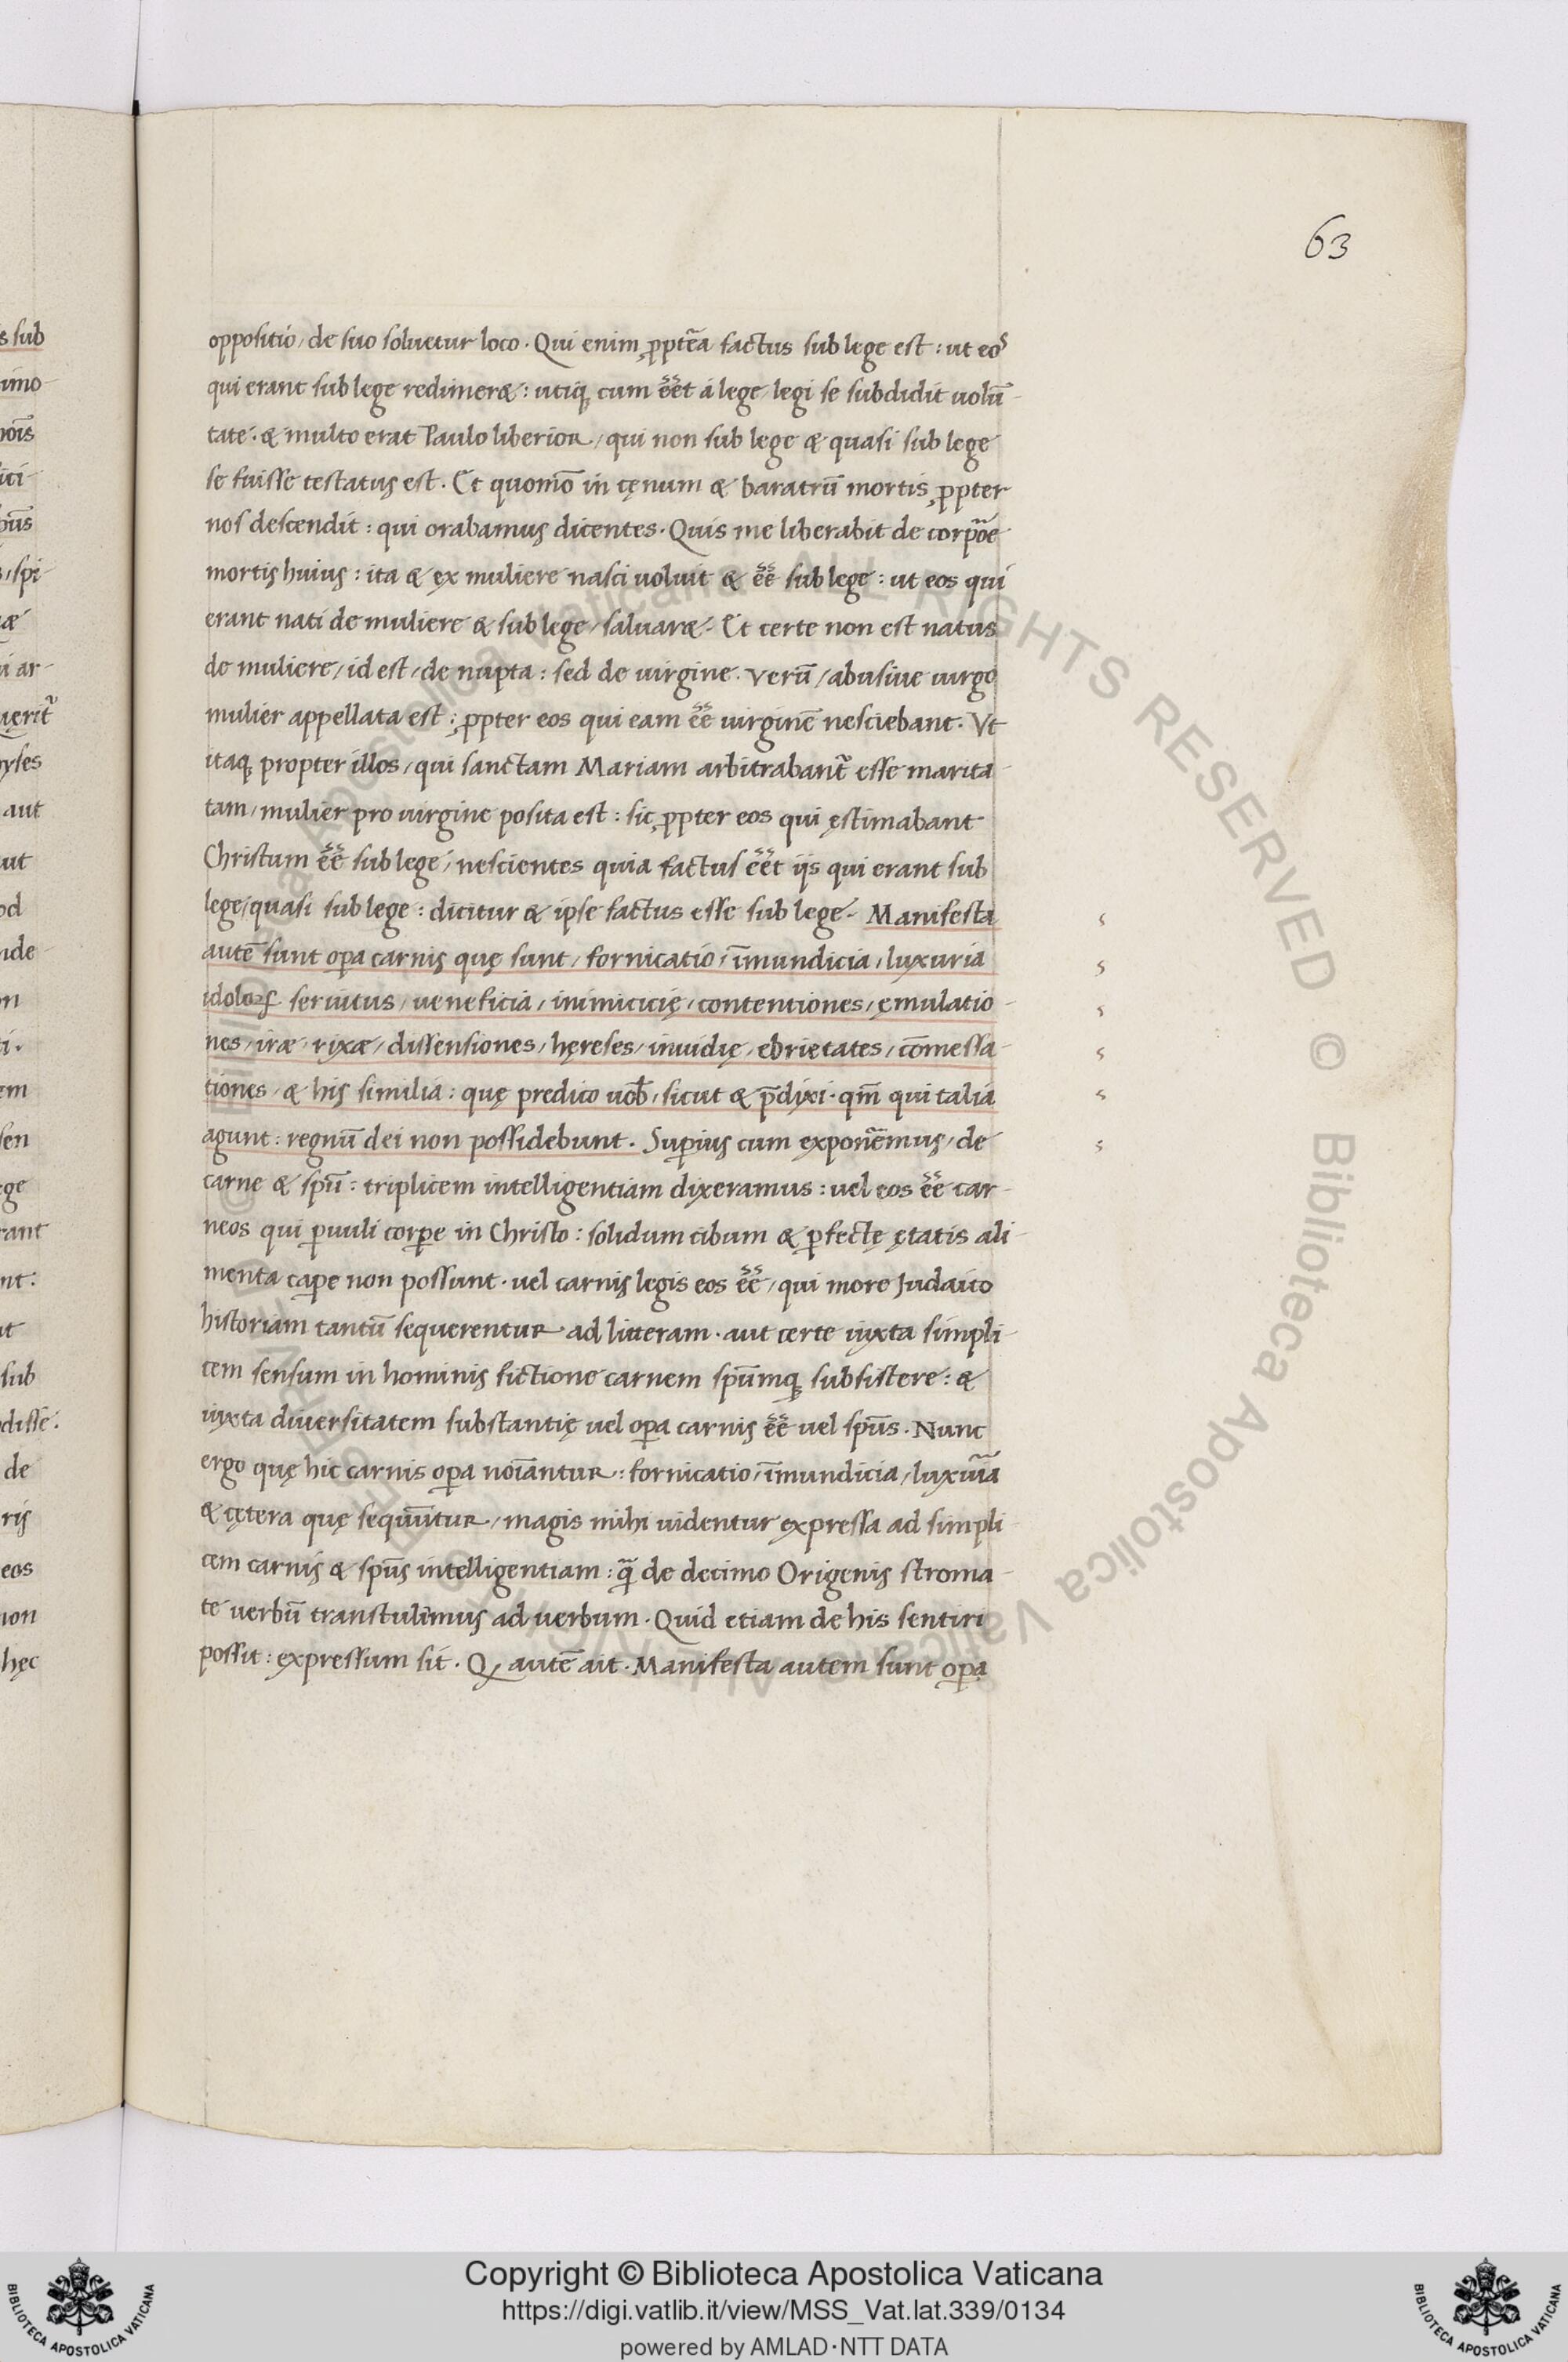 63
oppositio, de suo soluetur loco. Qui enim ꝓpte᷑a factus sub lege est: ut eos
qui erant sub lege redimeret: utiqꝫ cum ee᷑t á lege, legi se subdidit uolū-
tate. & multo erat Paulo liberior, qui non sub lege & quasi sub lege
se fuisse testatus est. Et quomō in cęnum & baratrū mortis ꝓpter
nos descendit: qui orabamus dicentes. Quis me liberabit de corpoe᷑
mortis huius: ita & ex muliere nasci uoluit & ee᷑ sub lege: ut eos qui
erant nati de muliere & sub lege, saluaret. Et certe non est natus
de muliere, id est, de nupta: sed de uirgine. Verū, abusiue uirgo
mulier appellata est: ꝓpter eos qui eam ee᷑ uirginē nesciebant. Vt
itaqꝫ propter illos, qui sanctam Mariam arbitrabant᷑ esse marita-
tam, mulier pro uirgine posita est: sic ꝓpter eos qui ęstimabant
Christum ee᷑ sub lege, nescientes quia factus ee᷑t ijs qui erant sub
lege, quasi sub lege: dicitur & ipse factus esse sub lege. Manifesta
autē sunt oꝑa carnis quę sunt, fornicatio, īmundicia, luxuria
idoloꝝ seruitus, ueneficia, inimicicię, contentiones, ęmulatio-
nes, iræ, rixæ, dissensiones, hęreses, inuidię, ebrietates, cōmessa-
tiones, & his similia: quę predico uob̄, sicut & p̄dixi. qm̄ qui talia
agunt: regnū dei non possidebunt. Suꝑius cum expone᷑mus, de
carne & spū: triplicem intelligentiam dixeramus: uel eos ee᷑ car-
neos qui ꝑuuli corꝑe in Christo: solidum cibum & ꝑfectę ętatis ali-
menta caꝑe non possunt. uel carnis legis eos ee᷑, qui more Judaico
historiam tantū sequerentur ad litteram. aut certe iuxta simpli-
cem sensum in hominis fictione carnem spūmqꝫ subsistere: &
iuxta diuersitatem substantię uel oꝑa carnis ee᷑ uel spūs. Nunc
ergo quę hic carnis oꝑa noīantur: fornicatio, īmundicia, luxui᷑a
& cętera quę sequūtur, magis mihi uidentur expressa ad simpli-
cem carnis & spūs intelligentiam: q̄ de decimo Origenis stroma-
te uerbū transtulimus ad uerbum. Quid etiam de his sentiri
possit: expressum sit. Ꝙ autē ait. Manifesta autem sunt oꝑa
Copyright © Biblioteca Apostolica Vaticana
https://digi.vatlib.it/view/MSS_Vat.lat.339/0134
powered by AMLAD·NTT DATA